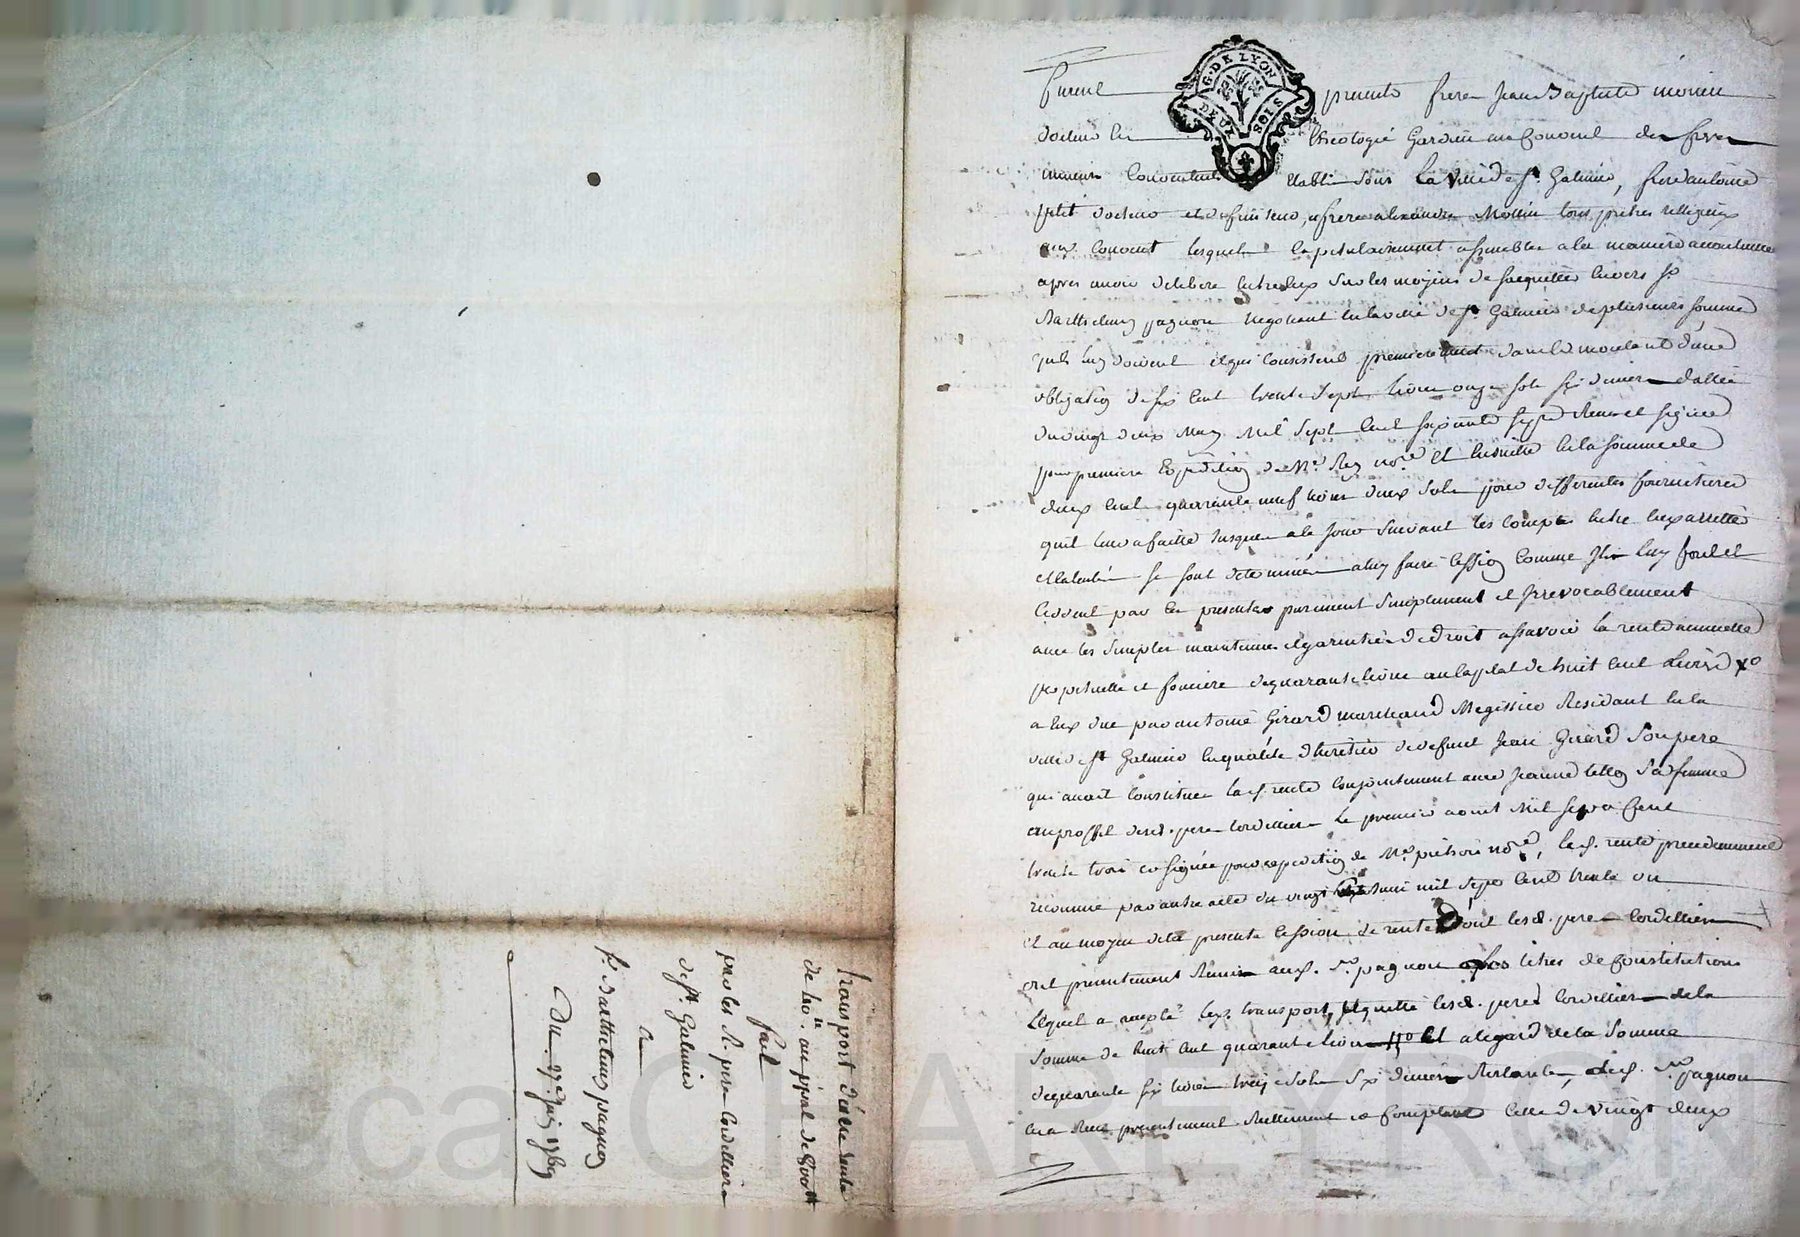 G. DE LYON
DEUX SOLS
Furent presents frere Jean Baptiste
docteur en theologie Gardien au Convent des freres
mineurs Conventuels etablis sous La ville de St. Galmier, frere antoine
petit docteur et definiteur, frere alexandre Mollin tous pretres religieux
aud. Convent lesquels capitulairement assemblés a la maniere accoutumée
apres avoir deliberé entre eux sur les moyens de s'acquitter envers sr.
Barthelemy pagnon negotiant en la ville de St. Galmier de plusieurs sommes
quils luy doivent et qui consistent premierement dans le montant d'une
obligation de six cent trente sept livres onze sols six deniers dattée
du vingt deux May Mil sept cent soixante Receu et signée
pour premiere Expedition de Me. Rey nore. et ensuitte en la somme de
deux cent quarante neuf livres deux sols pour differentes fournitures
quil leur a faittes Jusques a ce Jour suivant les Comptes entre eux arrettés
et calculés se sont determinés a luy faire cession comme Ils luy font et
Cedent par ces presentes purement simplement et Irrevocablement
avec les simples maintenues et garenties de droit assavoir la rente annuelle
perpetuelle et fonciere de quarante livres au cap̄al de huit cent Livres
a eux due par antoine Girard marchand Megissier Residant en la
ville de St Galmier en qualité d'heritier de defunt Jean Girard Son pere
qui avoit Constitué lad. rente conjointement avec Jeanne sa femme
au proffit desd. peres Cordelliers le premier aoust Mil sept Cent
trente trois et signée pour expedition de Me. nore., lad. rente precedemment
reconnue par autre acte du vingt mil sept cent trente un
et au moyen de la presente cession de rente dont lesd. peres Cordelliers
ont presentement Remis aud. sr. pagnon les titres de Constitution
lequel a accepté led. transport, Il quitte lesd. peres Cordelliers de la
somme de huit cent quarante livres et a legard de la somme
de quarante six livres treize sols six deniers Restante, led. sr. pagnon
la Receu presentement Reellement et Comptant Celle de vingt deux
Transport d'une rente
de 40 ll. au p̄pal de 800 ll
fait
par les R. peres Cordelliers
de St. Galmier
A
Sr. Barthelemy pagnon
Du 27e. Juin 1769
Pascal CHAREYRON